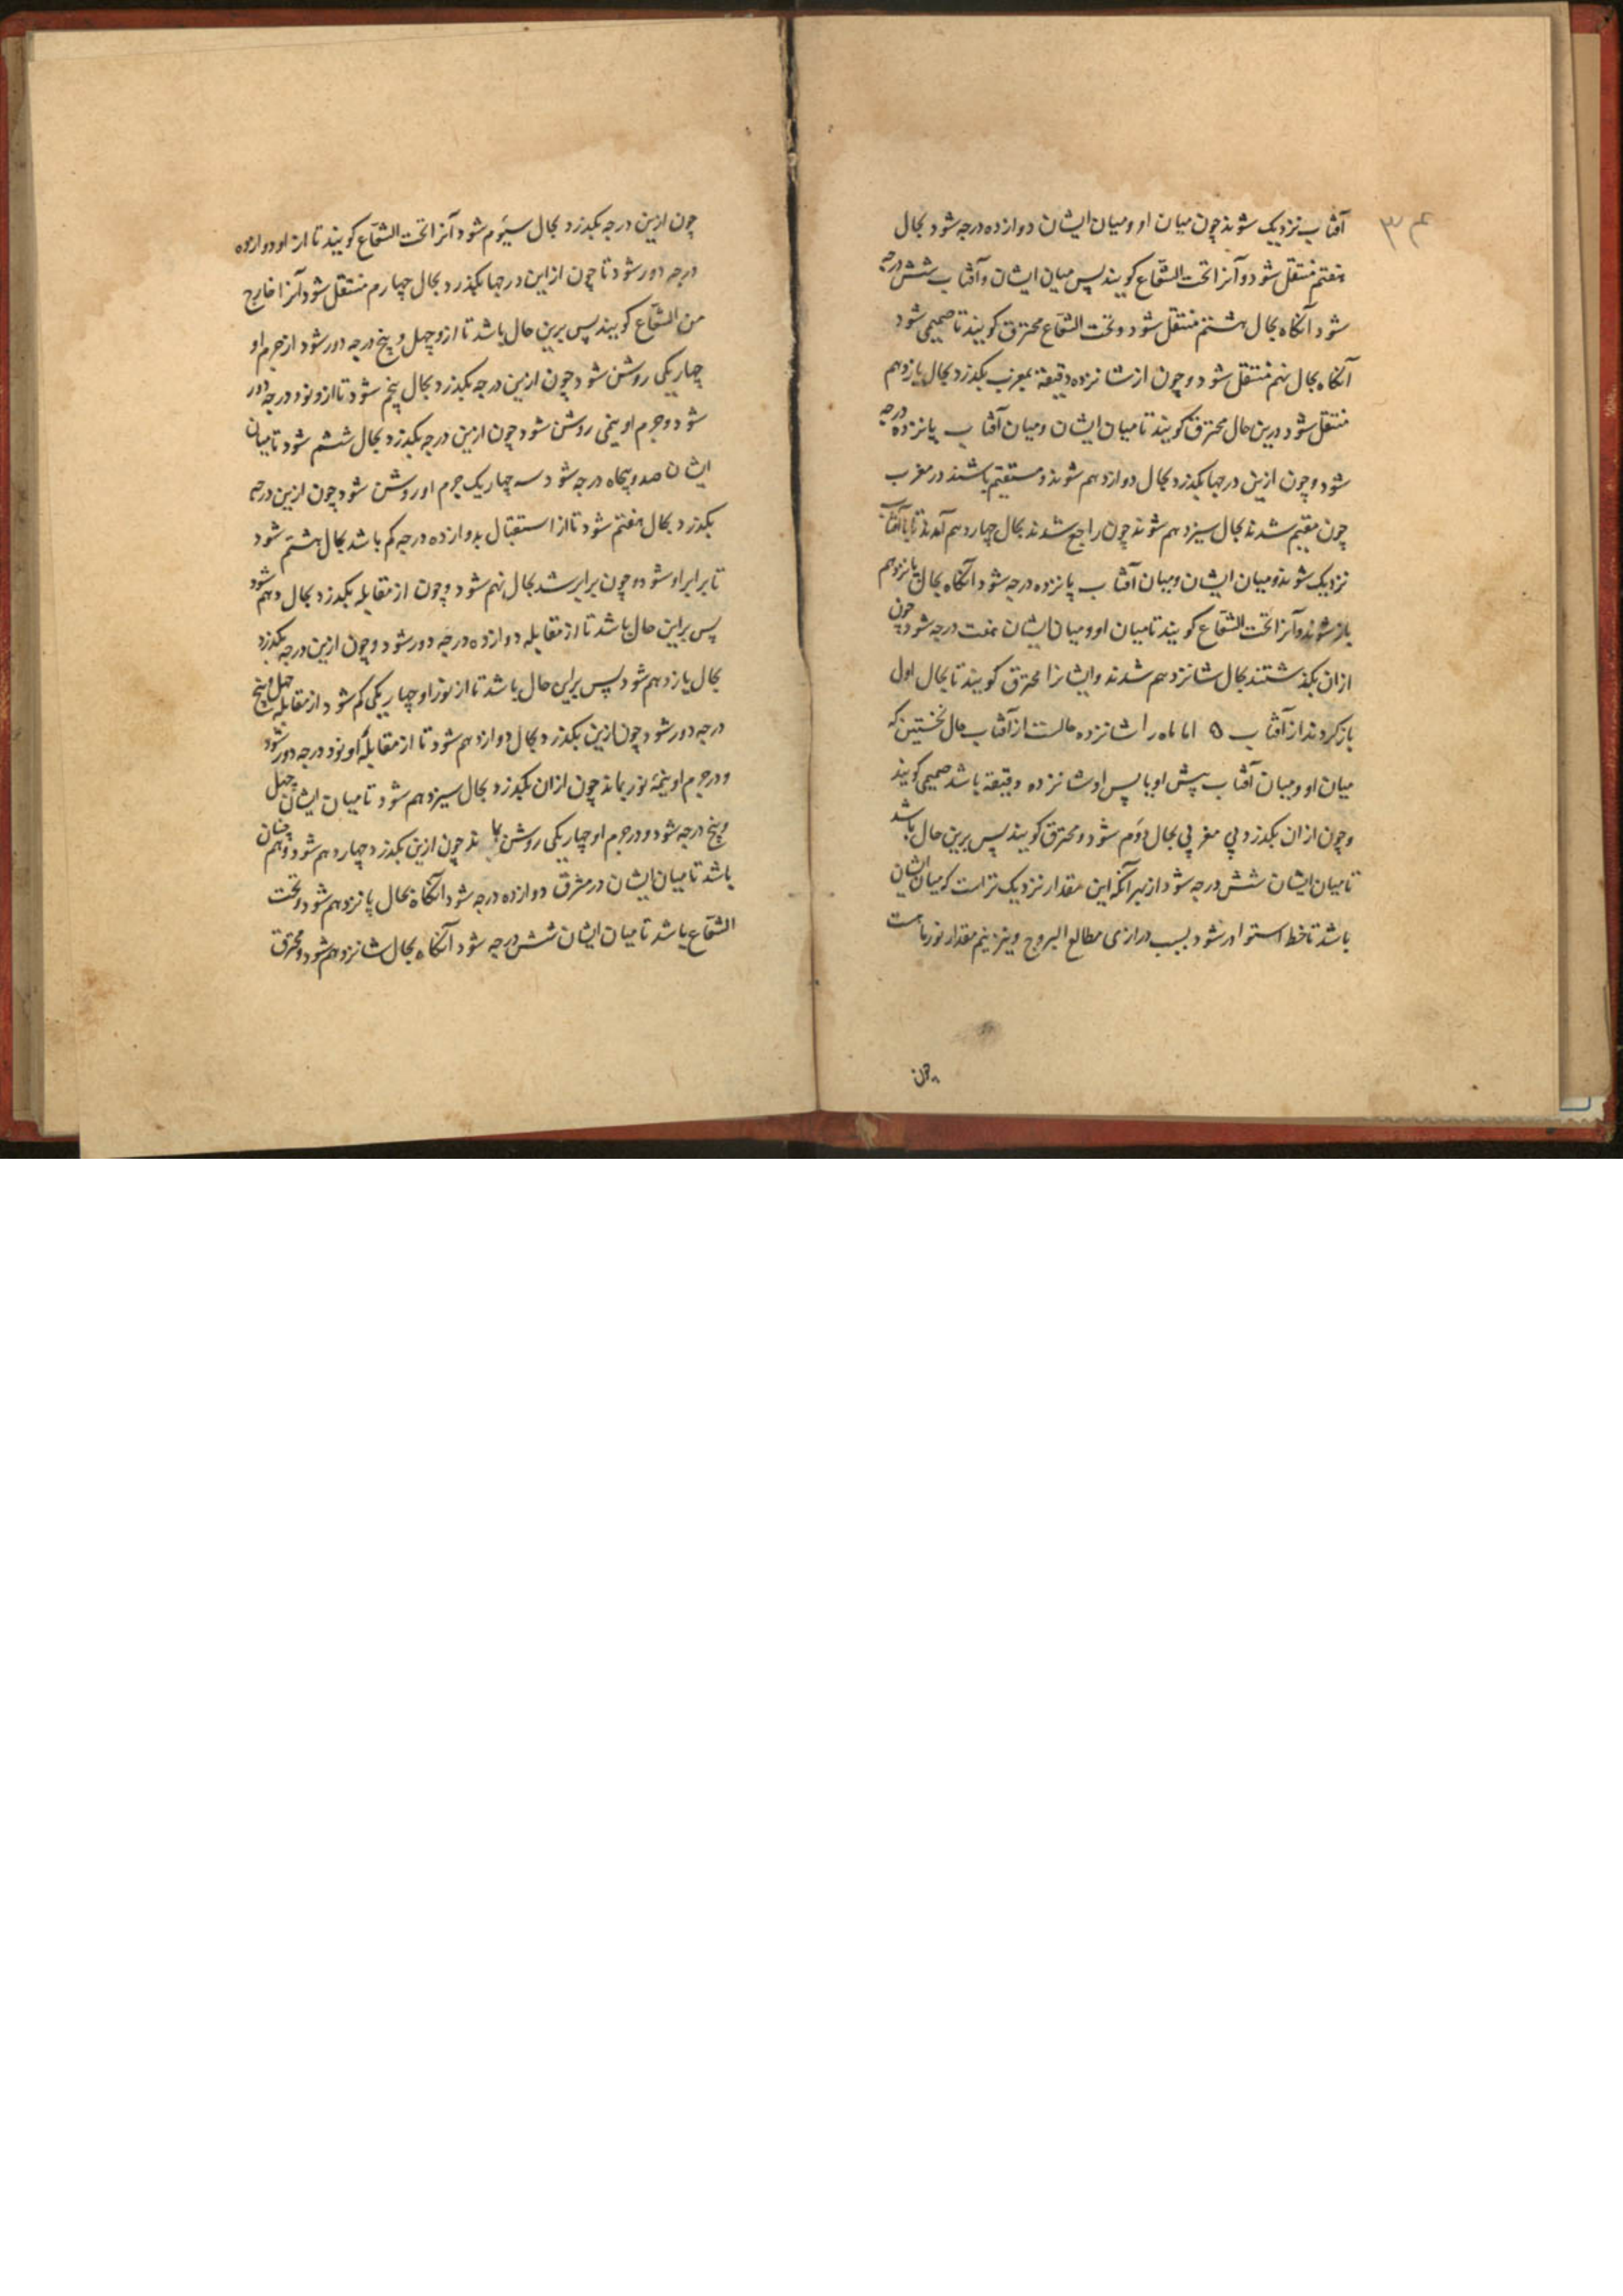 ۳۴
آفتاب نزدیک شوند چون میان او و میان ایشان دوازده درجه شود بحال
هفتم منتقل شود و آنرا تحت الشعاع کویند پس میان ایشان و آفتاب شش درجه
شود آنکاه بحال هشتم منتقل شود و تحت الشعاع محترق کویند تا صمیمی شود
آنکاه بحال نهم منتقل شود و چون از شانزده دقیقه بمغرب بکذرد بحال یازدهم
منتقل شود درین حال محترق کویند تا میان ایشان و میان آفتاب پانزده درجه
شود و چون ازین درجها بکذرد بحال دوازدهم شوند و مستقیم باشند در مغرب
چون مقیم شدند بحال سیزدهم شوند چون راجع شدند بحال چهاردهم آمدند تا با آفتاب
نزدیک شوند و میان ایشان و میان آفتاب پانزده درجه شود آنکاه بحال پانزدهم
باز شوند و آنرا تحت الشعاع کویند تا میان او و میان ایشان هفت درجه شود چون
ازان بکذشتند بحال شانزدهم شدند و ایشانرا محترق کویند تا بحال اول
باز کردند از آفتاب ۵ اما ماه را شانزده حالست از آفتاب حال نخستین که
میان او و میان آفتاب پیش او یا پس او شانزده دقیقه باشد صمیمی کویند
و چون ازان بکذرد پی مغربی بحال دوم شود و محترق کویند پس برین حال باشد
تا میان ایشان شش درجه شود از بهر آنکه این مقدار نزدیک تر است که میان ایشان
باشد تا خط استوا در شود بسبب درازی مطالع البروج و نیز نیم مقدار نور ماست
چون
چون ازین درجه بکذرد بحال سیوم شود آنرا تحت الشعاع کویند تا از او دوازده
درجه دور شود تا چون از این درجها بکذرد بحال چهارم منتقل شود آنرا خارج
من الشعاع کویند پس برین حال باشد تا ازو چهل و پنج درجه دور شود از جرم او
چهار یکی روشن شود چون ازین درجه بکذرد بحال پنجم شود تا ازو نود درجه دور
شود و جرم او نیمی روشن شود چون ازین درجه بکذرد بحال ششم شود تا میان
ایشان صد و پنجاه درجه شود سه چهار یک جرم او روشن شود چون ازین درجه
بکذرد بحال هفتم شود تا از استقبال بدوازده درجه کم باشد بحال هشتم شود
تا برابر او شود و چون برابر شد بحال نهم شود و چون از مقابله بکذرد بحال دهم شود
پس براین حال باشد تا از مقابله دوازده درجه دور شود و چون ازین درجه بکذرد
بحال یازدهم شود پس براین حال باشد تا از نور او چهار یکی کم شود از مقابله چهل و پنج
درجه دور شود چون ازین بکذرد بحال دوازدهم شود تا از مقابله او نود درجه دور شود
و در جرم او نیمه نور بماند چون ازان بکذرد بحال سیزدهم شود تا میان ایشان چهل
و پنج درجه شود و در جرم او چهار یکی روشن بماند چون ازین بکذرد چهاردهم شود و هم چنان
باشد تا میان ایشان در مشرق دوازده درجه شود آنکاه بحال پانزدهم شود و تحت
الشعاع باشد تا میان ایشان شش درجه شود آنکاه بحال شانزدهم شود و محترق